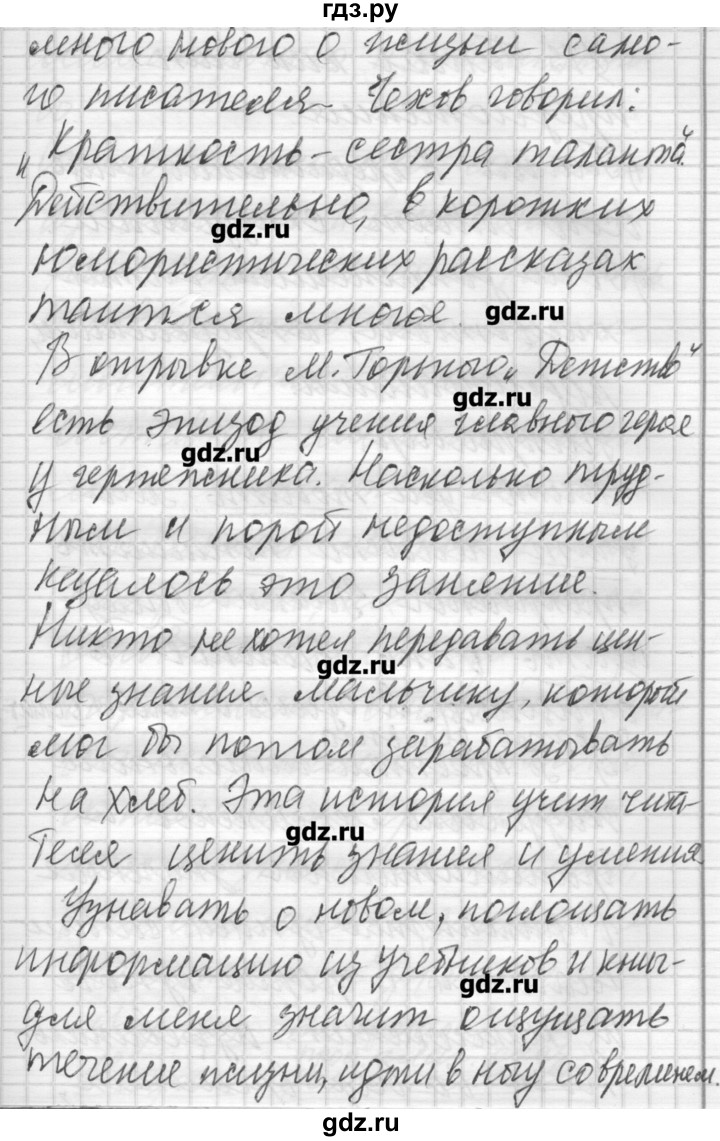 гдз.ру
много нового о жизни само-
го писателя. Чехов говорил:
„Краткость – сестра таланта“.
Действительно, в коротких
gdz.ru
юмористических рассказах
таится многое.
gdz.ru
В отрывке М. Горького „Детство“
gdz.ru
есть эпизод учения главного героя
gdz.ru
у чертежника. Насколько труд-
ным и порой недоступным
казалось это занятие.
Никто не хотел передавать цен-
gdz.ru
ные знания мальчику, который
мог бы потом зарабатывать
на хлеб. Эта история учит чита-
gdz.ru
теля ценить знания и умения.
Узнавать о новом, поглощать
информацию из учебников и книг -
gdz.ru
для меня значит ощущать
течение жизни, идти в ногу со временем.
gdz.ru